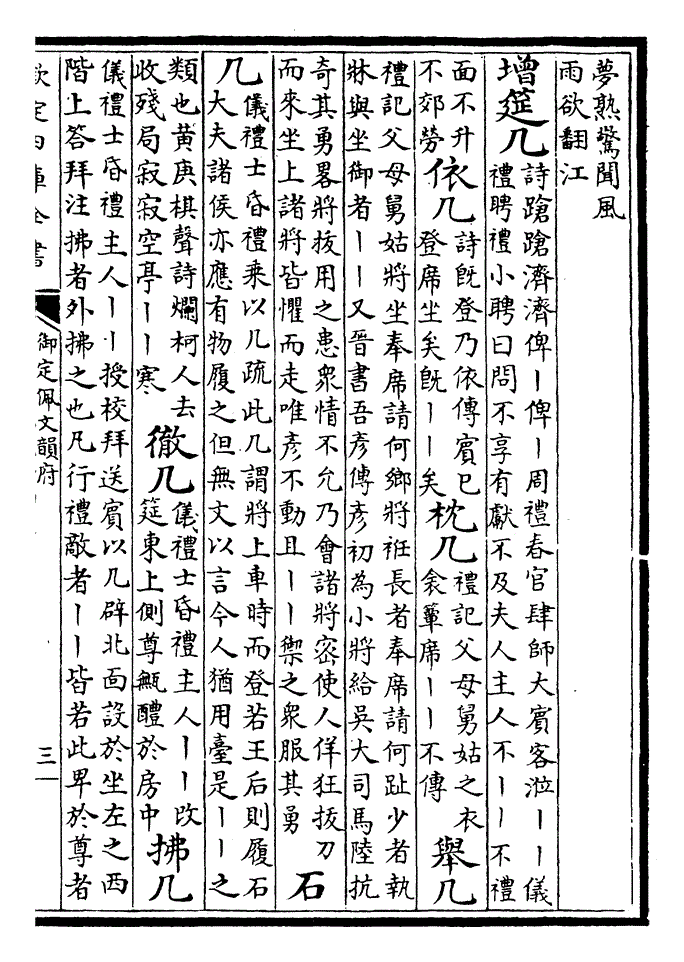 夢熟驚聞風
雨欲翻江
增筵几
詩蹌蹌濟濟俾丨俾丨周禮春官肆師大賓客涖丨丨儀
禮聘禮小聘曰問不享有獻不及夫人主人不丨丨不禮
面不升
不郊勞
依几
詩既登乃依傳賓已
登席坐矣既丨丨矣
枕几
禮記父母舅姑之衣
衾簟席丨丨不傳
舉几
禮記父母舅姑將坐奉席請何鄉將衽長者奉席請何趾少者執
牀與坐御者丨丨又晉書吾彥傳彥初為小將給吳大司馬陸抗
奇其勇畧將拔用之患衆情不允乃會諸將密使人佯狂拔刀
而來坐上諸將皆懼而走唯彥不動且丨丨禦之衆服其勇
石
几
儀禮士昏禮乘以几疏此几謂將上車時而登若王后則履石
大夫諸侯亦應有物履之但無文以言今人猶用臺是丨丨之
類也黄庚棋聲詩爛柯人去
收殘局寂寂空亭丨丨寒
徹几
儀禮士昏禮主人丨丨改
筵東上側尊甒醴於房中
拂几
儀禮士昏禮主人丨丨授校拜送賓以几辟北面設於坐左之西
階上答拜注拂者外拂之也凡行禮敵者丨丨皆若此卑於尊者
欽定四庫全書
御定佩文韻府
三